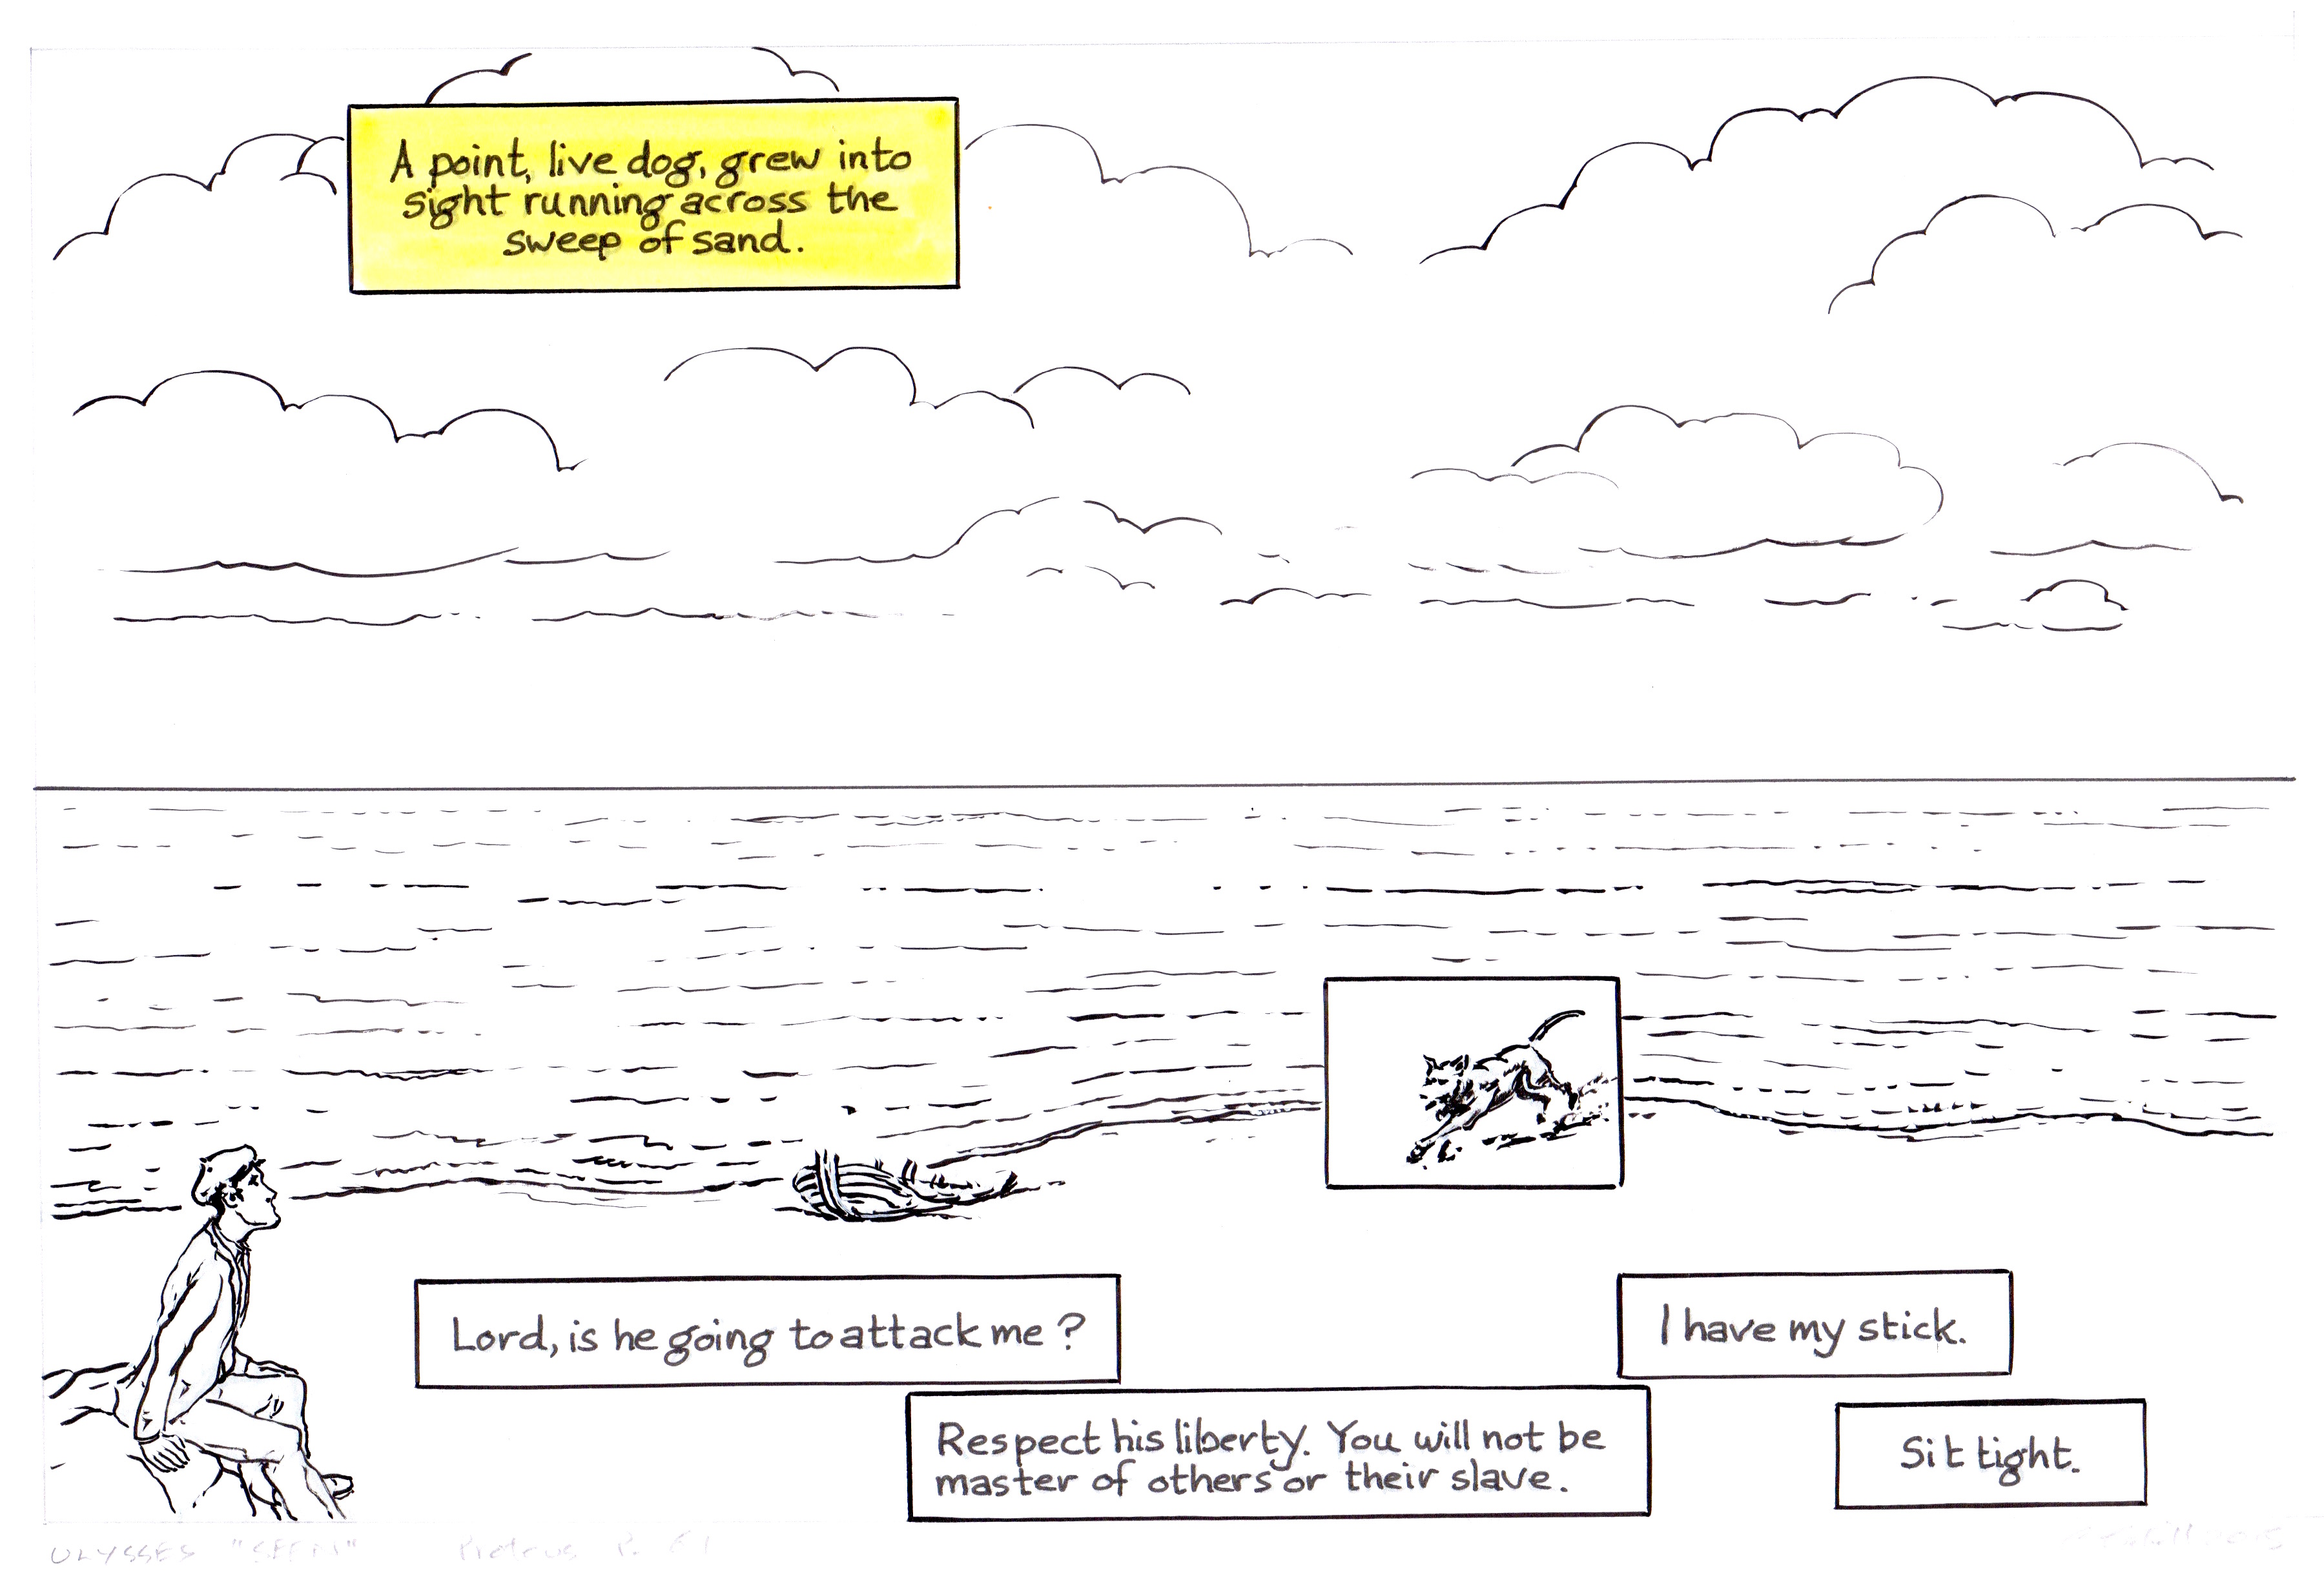 A point, live dog, grew into
sight running across the
sweep of sand.
Lord, is he going to attack me?
I have my stick.
Respect his liberty. You will not be
master of others or their slave.
Sit tight.
ULYSSES "SEEN" Proteus P.